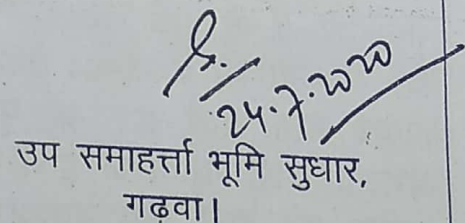 24.7.2020
उप समाहर्त्ता भूमि सुधार,
गढ़वा।